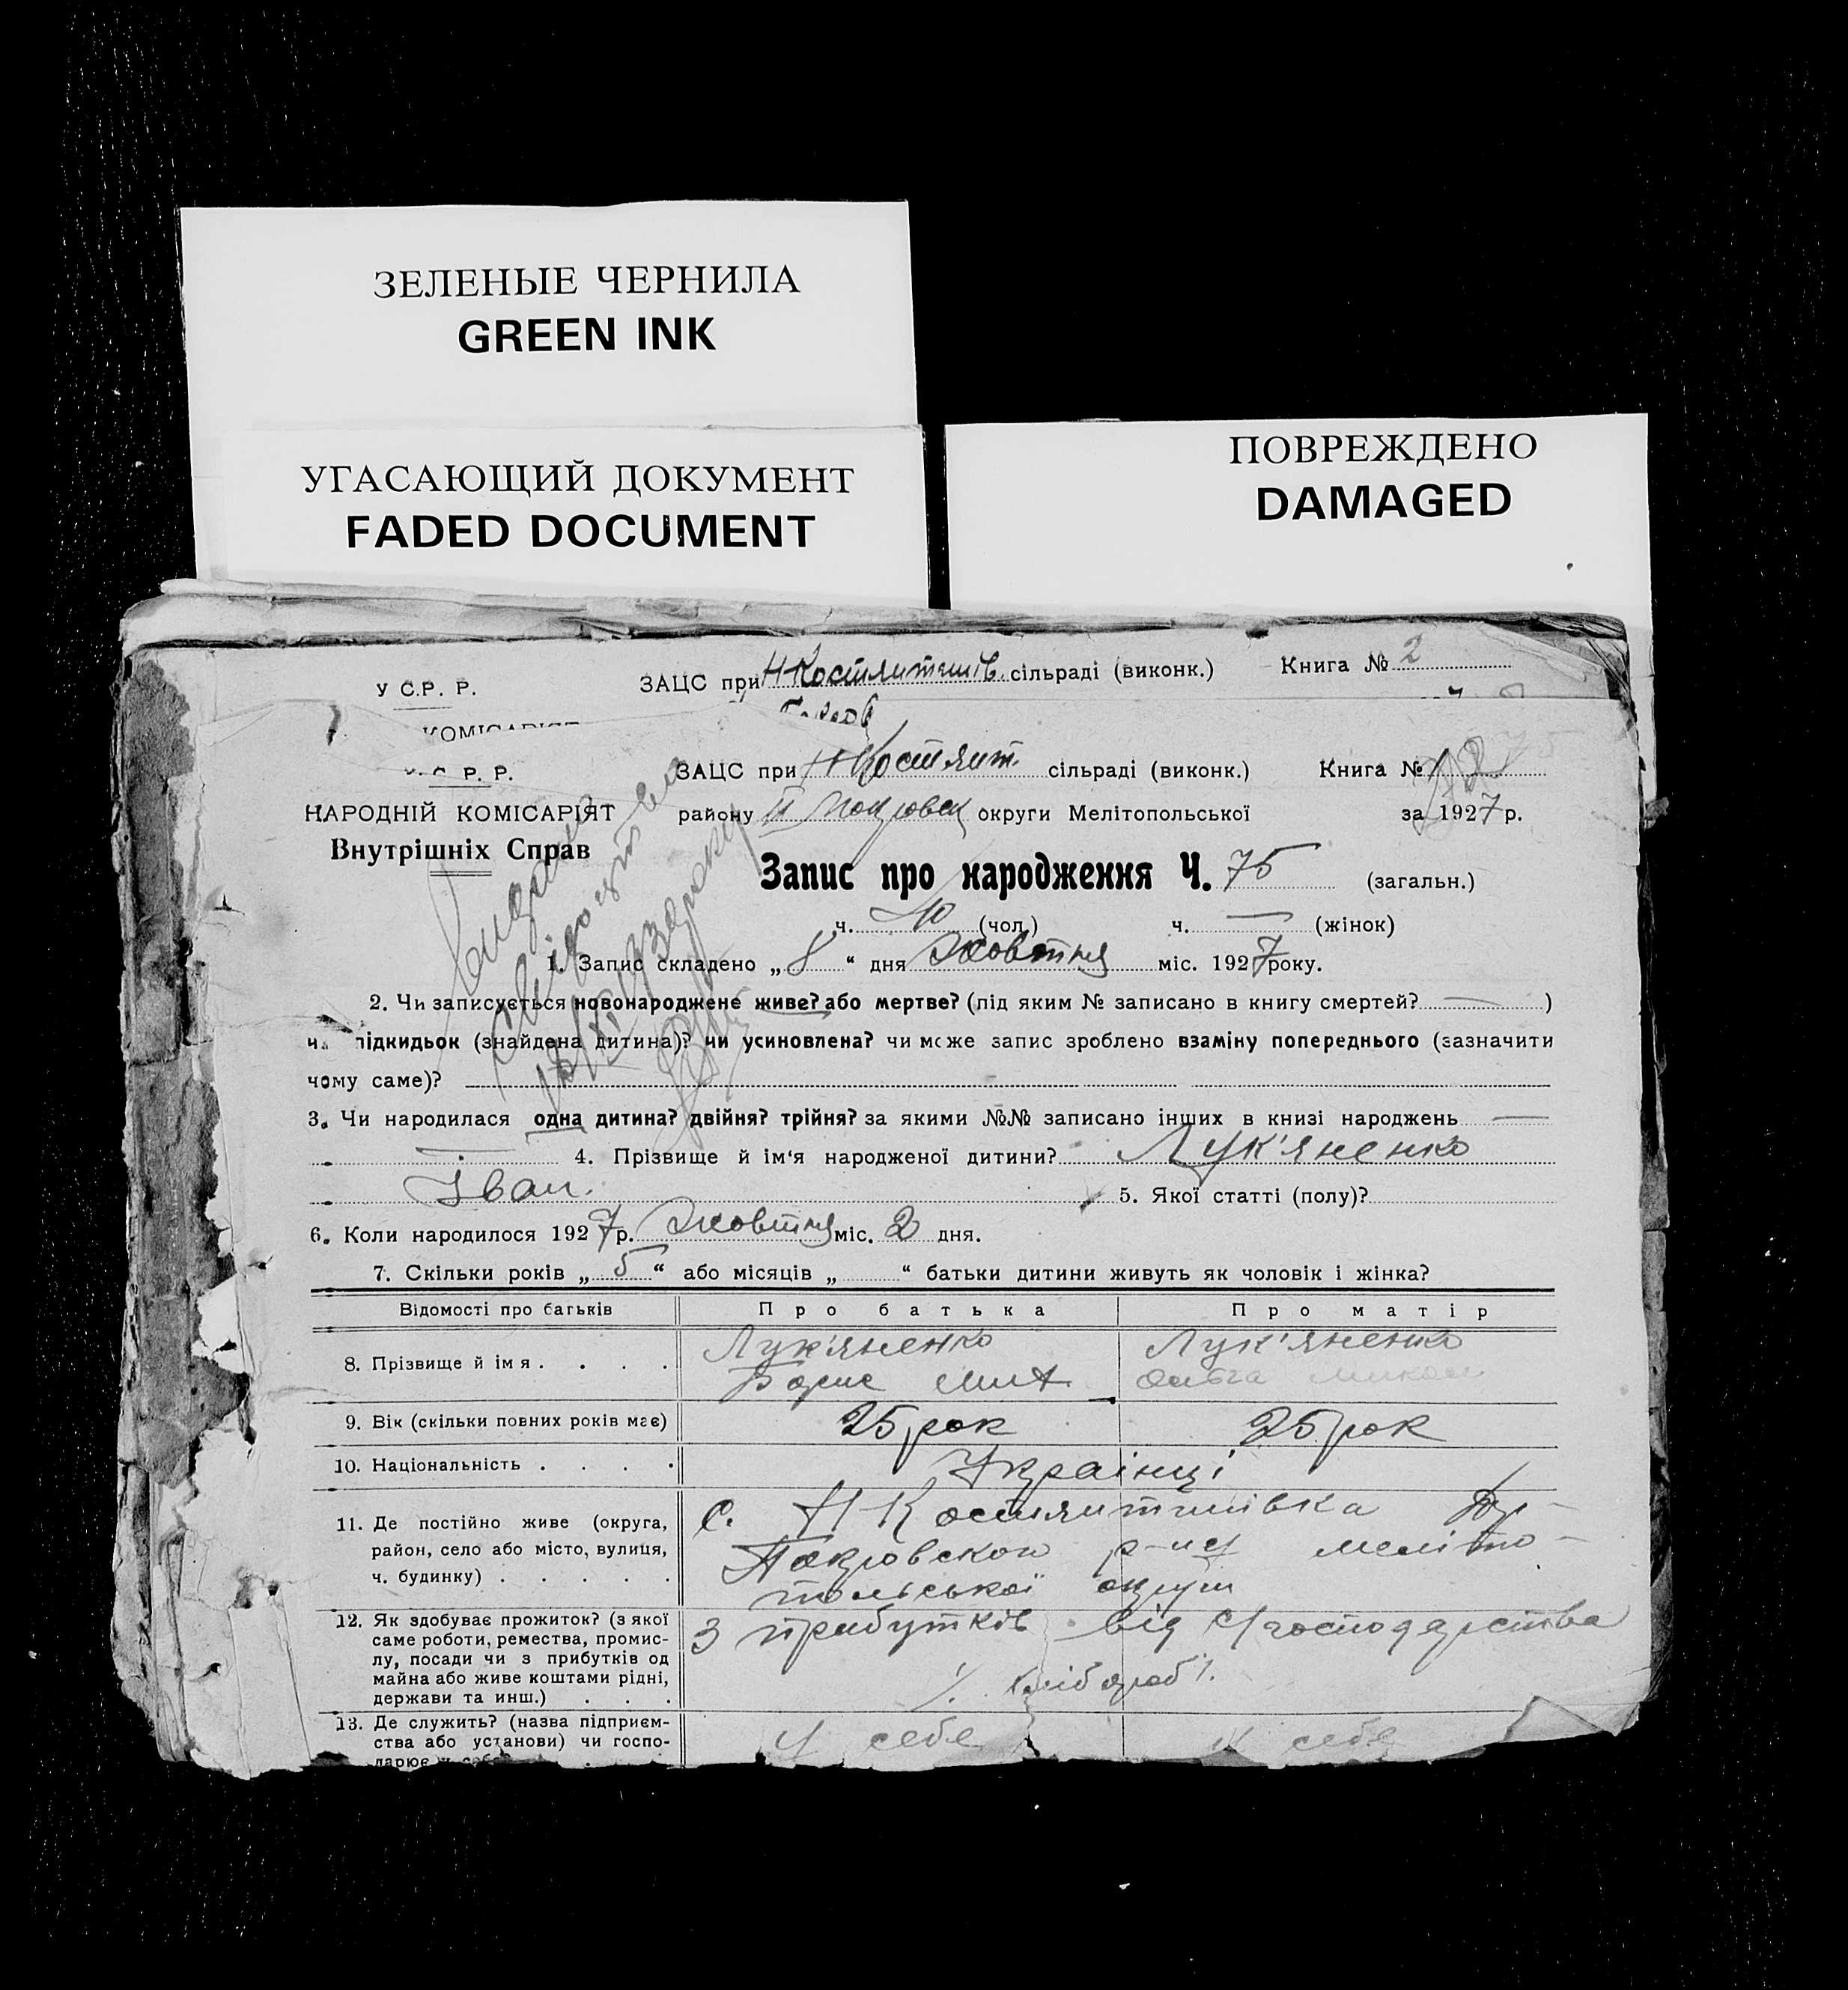 ЗЕЛЕНЫЕ ЧЕРНИЛА
GREEN INK
УГАСАЮЩИЙ ДОКУМЕНТ
FADED DOCUMENT
ПОВРЕЖДЕНО
DAMAGED
У С.Р. Р. ЗАЦС при сільраді (виконк.) Книга № 2
КОМІСАРІЯТ
С. Р. Р. ЗАЦС при Н Костянт. сільраді (виконк.) Книга №
НАРОДНІЙ КОМІСАРІЯТ району округи Мелітопольської за 1927 р.
Внутрішніх Справ
Запис про народження Ч. 75 (загальн.)
ч. 40 (чол.) ч. — (жінок)
1. Запис складено „ 8 “ дня Жовтня міс. 1927 року.
2. Чи записується новонароджене живе? або мертве? (під яким № записано в книгу смертей? — )
підкидьок (знайдена дитина)? чи усиновлена? чи може запис зроблено взаміну попереднього (зазначити
чому саме)?
3. Чи народилася одна дитина? двійня? трійня? за якими №№ записано інших в книзі народжень —
— 4. Прізвище й ім‘я народженої дитини? Лук'яненко
Іван. 5. Якої статті (полу)?
6. Коли народилося 1927 р. Жовтня міс. 2 дня.
7. Скільки років „ 5 “ або місяців „ “ батьки дитини живуть як чоловік і жінка?
Відомості про батьків Про батька Про матір
8. Прізвище й імя . . . . Лук'яненко Лук'яненко
Борис Мит Ольга Микол
9. Вік (скільки повних років має) 25 рок 25 рок
10. Національність . . . . Українці
11. Де постійно живе (округа, район, село або місто, вулиця, ч. будинку) . . . . .
с. Н Костянтинівка
Покровского р-ну меліто-
польської округи
12. Як здобуває прожиток? (з якої саме роботи, ремества, промислу, посади чи з прибутків од майна або живе коштами рідні, держави та инш.) . . .
З прибутків від с/господарства
хлібороб
13. Де служить? (назва підприємства або установи) чи господарює у себе?
У себе У себе